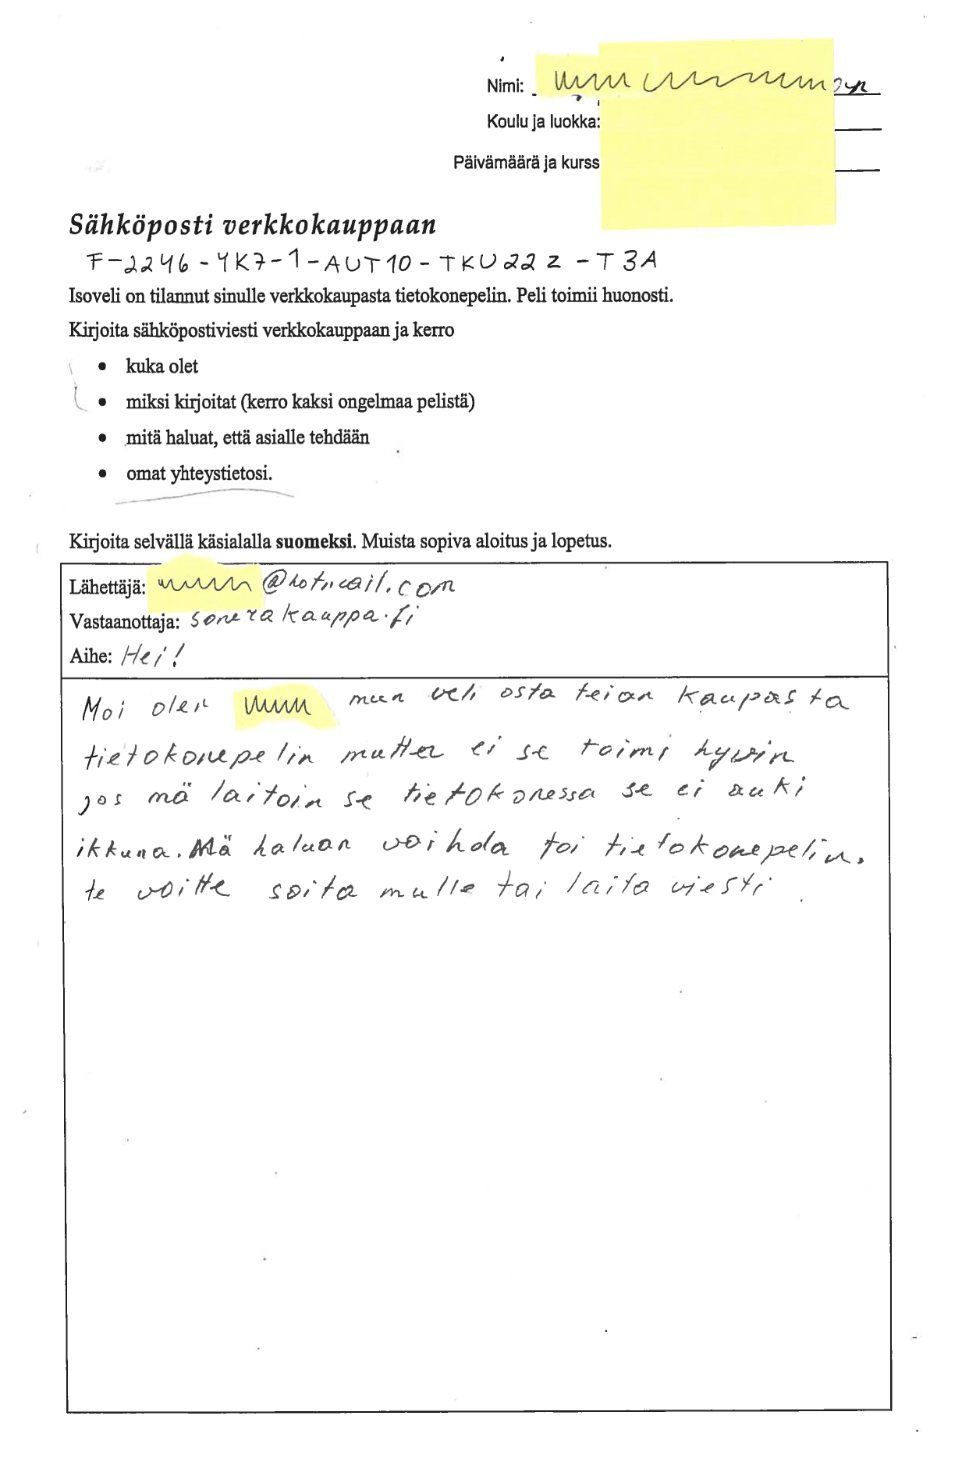 Nimi:
Koulu ja luokka:
Päivämäärä ja kurss
Sähköposti verkkokauppaan
F-2246-YK7-1-AUT10-TKU22Z-T3A
Isoveli on tilannut sinulle verkkokaupasta tietokonepelin. Peli toimii huonosti.
Kirjoita sähköpostiviesti verkkokauppaan ja kerro
• kuka olet
• miksi kirjoitat (kerro kaksi ongelmaa pelistä)
• mitä haluat, että asialle tehdään
• omat yhteystietosi.
Kirjoita selvällä käsialalla suomeksi. Muista sopiva aloitus ja lopetus.
Lähettäjä: @hotmail.com
Vastaanottaja: sonerakauppa.fi
Aihe: Hei!
Moi olen mun veli osta teian kaupasta
tietokonepelin mutta ei se toimi hyvin
jos mä laitoin se tietokonessa se ei auki
ikkuna. Mä haluan voihda toi tietokonepelin.
te voitte soita mulle tai laita viesti.